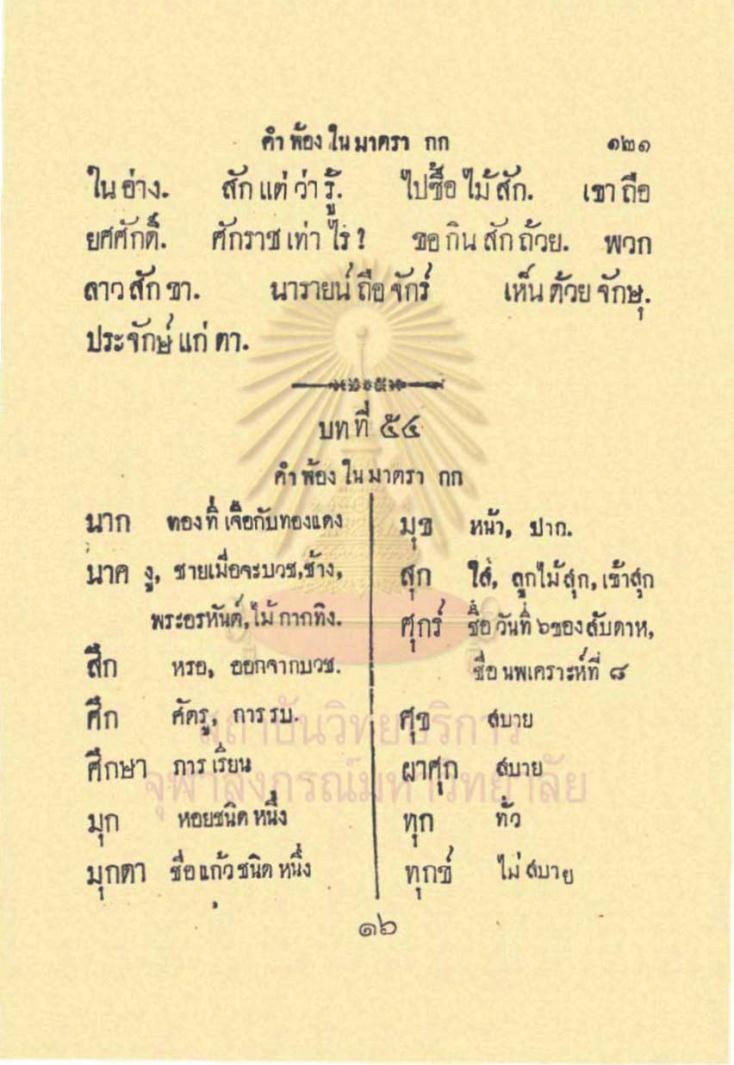 คำพ้องในมาตรา กก ๑๒๑
ในอ่าง. สักแต่ว่ารู้. ไปซื้อไม้สัก. เขาถือ
ยศศักดิ์. ศักราชเท่าไร? ขอกินสักถ้วย. พวก
ลาวสักขา. นารายน์ถือจักร์ เห็นด้วยจักษุ.
ประจักษ์แก่ตา.
บทที่ ๕๔
คำพ้องในมาตรา กก
นาก ทองที่เจือกับทองแดง
นาค งู, ชายเมื่อจะบวช, ช้าง,
พระอรหันต์, ไม้กากทิง.
สึก หรอ, ออกจากบวช.
ศึก ศัตรู, การรบ.
ศึกษา การเรียน
มุก หอยชนิดหนึ่ง
มุกดา ชื่อแก้วชนิดหนึ่ง
มุข หน้า, ปาก.
สุก ใส่, ลูกไม้สุก, เข้าสุก
ศุกร์ ชื่อวันที่ ๖ ของสับดาห,
ชื่อนพเคราะห์ที่ ๘
ศุข สบาย
ผาศุก สบาย
ทุก ทั่ว
ทุกข์ ไม่สบาย
๑๖
สถาบันวิทยบริการ
จุฬาลงกรณ์มหาวิทยาลัย